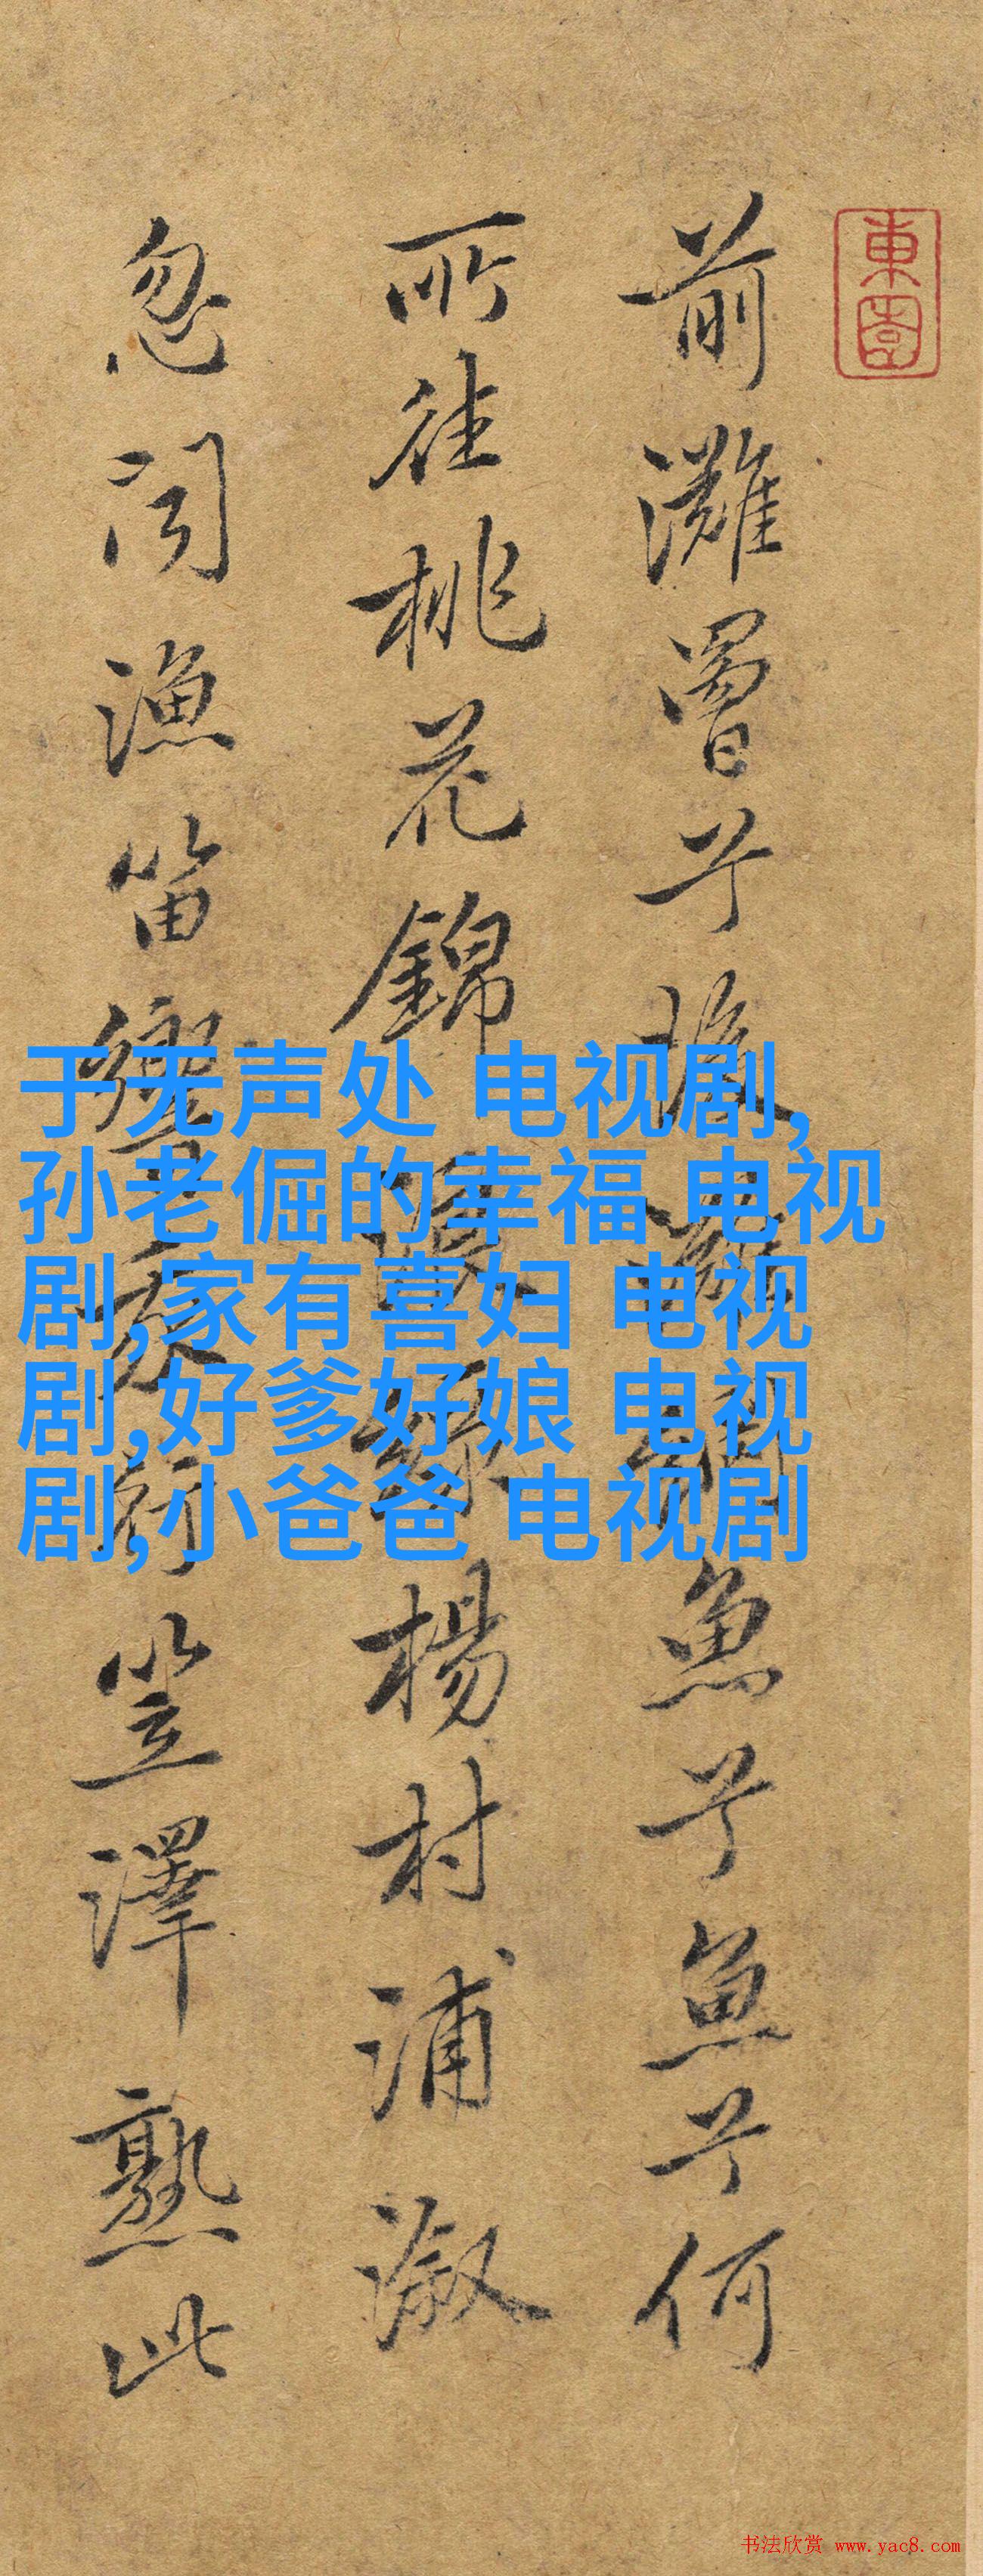 東園
前灘罾兮後灘網魚兮魚兮何
所往桃花錦浪綠楊村浦溆
忽聞漁笛響蓑衍笠澤熟此
于无声处 电视剧,
孙老倔的幸福 电视
剧,家有喜妇 电视
剧,好爹好娘 电视
剧,小爸爸 电视剧
书法欣赏 www.yac8.com